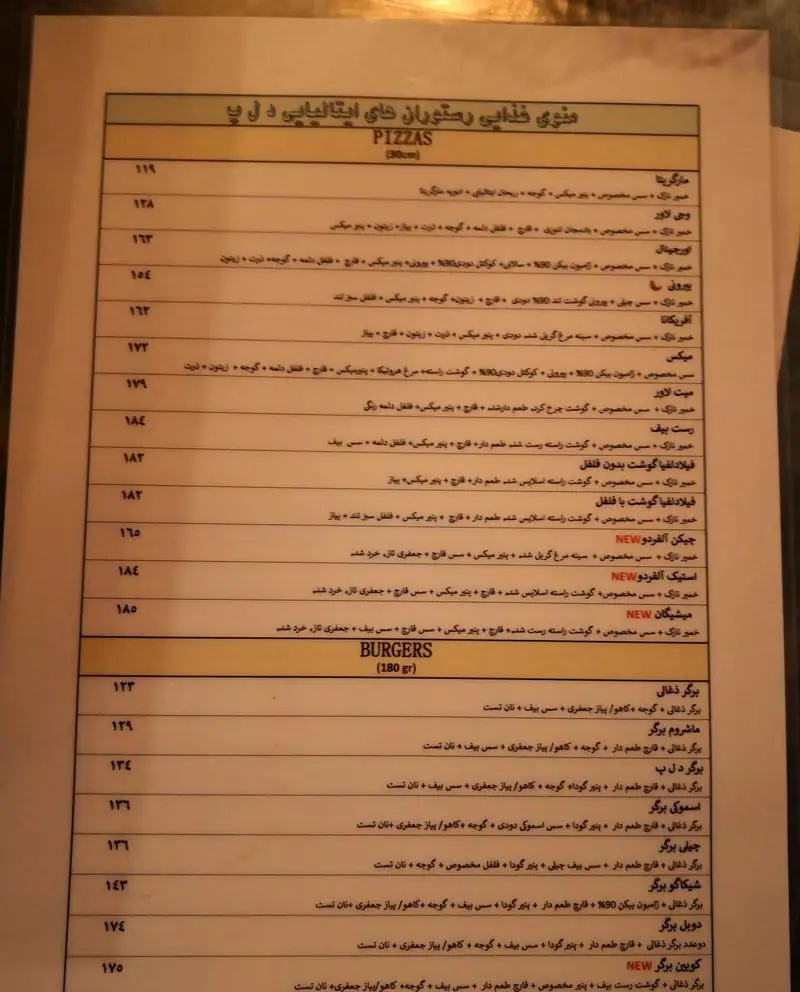 منوی غذایی رستوران های ایتالیایی د ل پ
PIZZAS
(30cm)
مارگریتا ۱۱۹
خمیر نازک + سس مخصوص + پنیر میکس + گوجه + ریحان ایتالیایی + ادویه مارگریتا
وجی لاور ۱۳۸
خمیر نازک + سس مخصوص + بادمجان تنوری + قارچ + فلفل دلمه + گوجه + ذرت + پیاز+ زیتون + پنیر میکس
اورجینال ۱۶۳
خمیر نازک + سس مخصوص + ژامبون بیکن 90% + سالامی+ کوکتل دودی90%+ پپرونی+ پنیر میکس + قارچ + فلفل دلمه + گوجه+ ذرت + زیتون
پپرونی ۱۵٤
خمیر نازک + سس چیلی + پپرونی گوشت تند 90% دودی + قارچ + زیتون+ گوجه + پنیر میکس + فلفل سبز تند
آفریکانا ۱٦۲
خمیر نازک + سس مخصوص + سینه مرغ گریل شده دودی + پنیر میکس + ذرت + زیتون + قارچ + پیاز
میکس ۱۷۲
سس مخصوص + ژامبون بیکن 90% + پپرونی + کوکتل دودی90%+ گوشت راسته+ مرغ + پنیرمیکس + قارچ + فلفل دلمه + گوجه + زیتون + ذرت
میت لاور ۱۷۹
خمیر نازک + سس مخصوص + گوشت چرخ کرده طعم دارشده + قارچ + پنیر میکس+ فلفل دلمه رنگی
رست بیف ۱۸٤
خمیر نازک + سس مخصوص + گوشت راسته رست شده طعم دار+ قارچ + پنیر میکس+ فلفل دلمه + سس بیف
فیلادلفیا گوشت بدون فلفل ۱۸۲
خمیر نازک + سس مخصوص + گوشت راسته اسلایس شده طعم دار+ قارچ + پنیر میکس+ پیاز
فیلادلفیا گوشت با فلفل ۱۸۲
خمیر نازک + سس مخصوص + گوشت راسته اسلایس شده طعم دار+ قارچ + پنیر میکس + فلفل سبز تند + پیاز
چیکن آلفردو NEW ۱٦۵
خمیر نازک + سس مخصوص + سینه مرغ گریل شده + پنیر میکس + سس قارچ + جعفری تازه خرد شده
استیک آلفردو NEW ۱۸٤
خمیر نازک + سس مخصوص+ گوشت راسته اسلایس شده + قارچ + پنیر میکس + سس قارچ + جعفری تازه خرد شده
میشیگان NEW ۱۸۵
خمیر نازک + سس مخصوص + گوشت راسته رست شده+ قارچ + پنیر میکس + سس قارچ + سس بیف + جعفری تازه خرد شده
BURGERS
(180 gr)
برگر ذغالی ۱۲۳
برگر ذغالی + گوجه +کاهو/ پیاز جعفری + سس بیف + نان تست
ماشروم برگر ۱۲۹
برگر ذغالی + قارچ طعم دار + گوجه + کاهو/ پیاز جعفری + سس بیف + نان تست
برگر د ل پ ۱۳٤
برگر ذغالی + قارچ طعم دار + پنیر گودا+ گوجه + کاهو/ پیاز جعفری + سس بیف + نان تست
اسموکی برگر ۱۳٦
برگر ذغالی + قارچ طعم دار + پنیر گودا + سس اسموکی دودی + گوجه +کاهو/ پیاز جعفری +نان تست
چیلی برگر ۱۳٦
برگر ذغالی + قارچ طعم دار + سس بیف چیلی + پنیر گودا + فلفل مخصوص + گوجه + نان تست
شیکاگو برگر ۱٤۳
برگر ذغالی + ژامبون بیکن 90% + قارچ طعم دار + پنیر گودا + سس بیف + گوجه +کاهو/ پیاز جعفری +نان تست
دوبل برگر ۱۷٤
دوعدد برگر ذغالی + قارچ طعم دار + پنیر گودا + سس بیف + گوجه + کاهو/ پیاز جعفری + نان تست
کویین برگر NEW ۱۷۵
برگر ذغالی + گوشت رست بیف + پنیر مخصوص + قارچ طعم دار + سس بیف + گوجه+ کاهو/پیاز جعفری+ نان تست